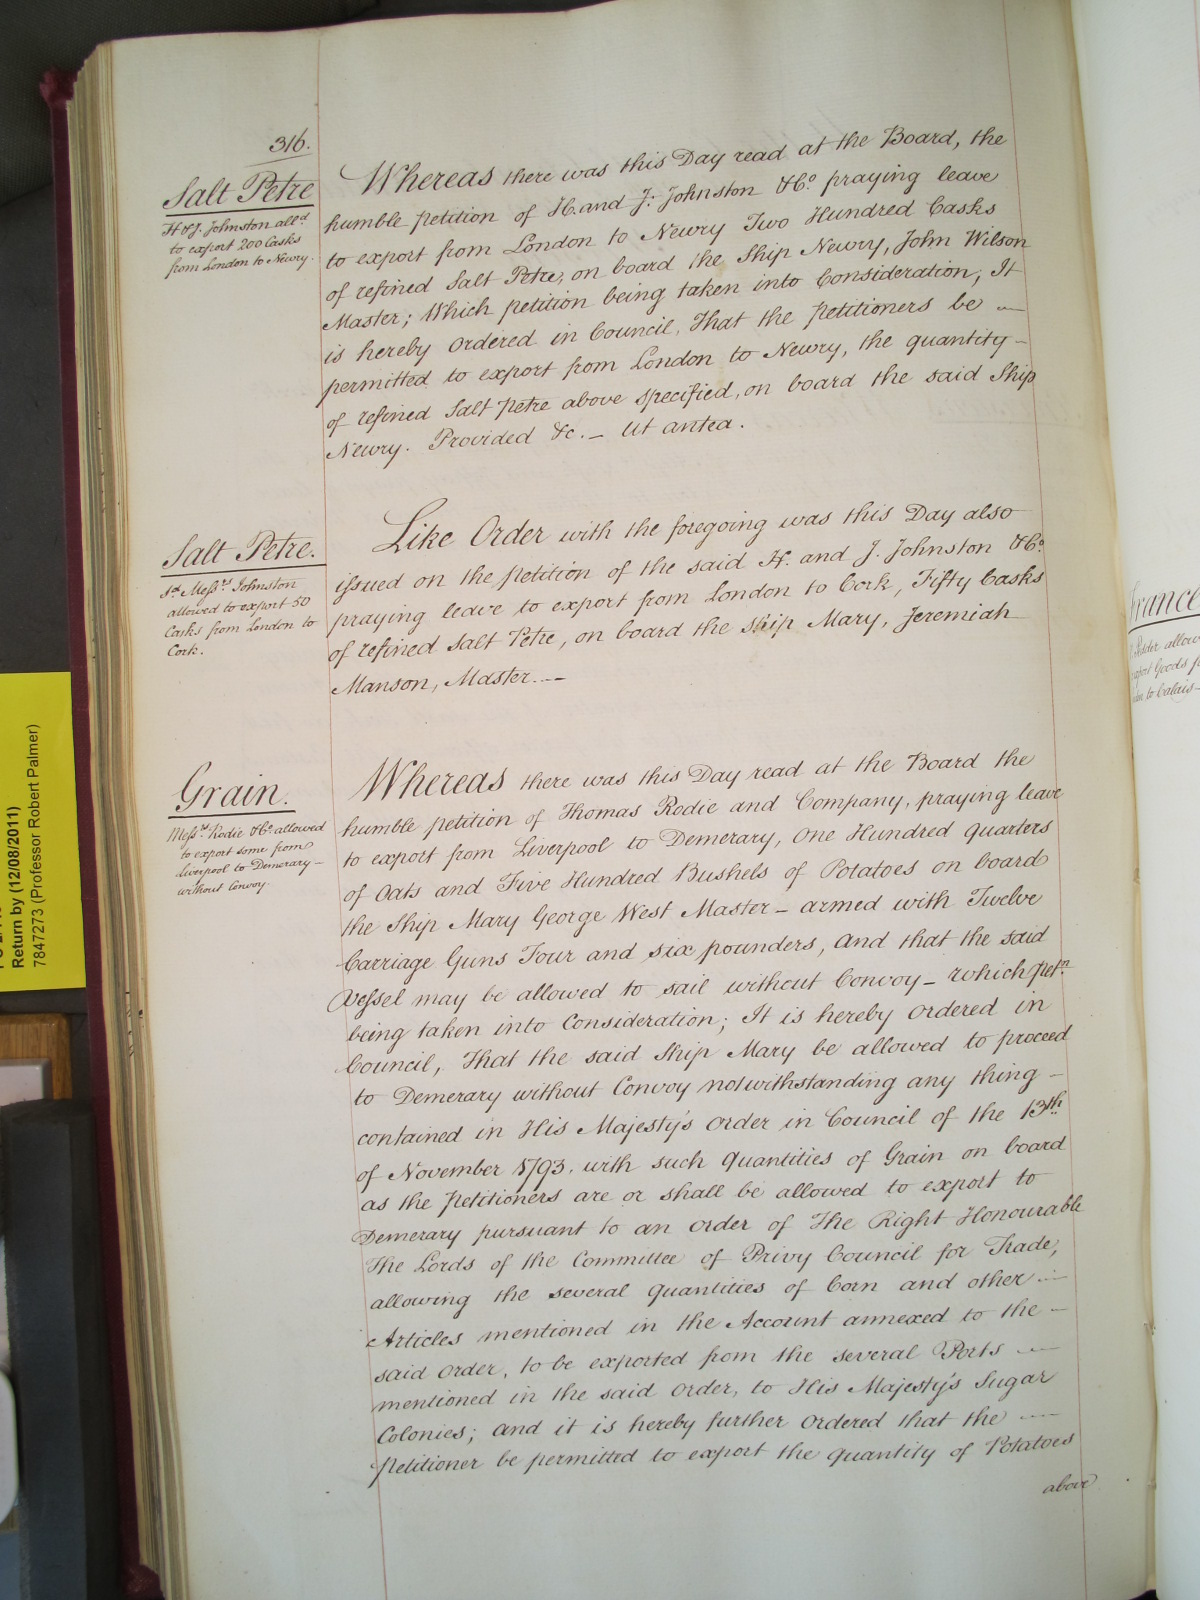 316.
Salt Petre
H & J. Johnston all.d
to export 200 Casks
from London to Newry.
Whereas there was this Day read at the Board, the
humble petition of H. and J. Johnston & Co. praying leave
to export from London to Newry Two Hundred Casks
of refined Salt Petre, on board the Ship Newry, John Wilson
Master; Which petition being taken into Consideration, It
is hereby Ordered in Council, That the Petitioners be —
permitted to export from London to Newry, the quantity —
of refined Salt Petre above specified, on board the said Ship
Newry. Provided &c. — Ut antea.
Salt Petre.
s.d Mess.rs Johnston
allowed to export 50
Casks from London to
Cork.
Like Order with the foregoing was this Day also
issued on the Petition of the said H. and J. Johnston & Co.
praying leave to export from London to Cork, Fifty Casks
of refined Salt Petre, on board the ship Mary, Jeremiah
Manson, Master. —
Grain.
Mess.rs Rodie & Co. allowed
to export some from
Liverpool to Demerary —
without Convoy
Whereas there was this Day read at the Board the
humble petition of Thomas Rodie and Company, praying leave
to export from Liverpool to Demerary, One Hundred quarters
of Oats and Five Hundred Bushels of Potatoes on board
the Ship Mary George West Master — armed with Twelve
Carriage Guns Four and six pounders, and that the said
Vessel may be allowed to sail without Convoy — which pet.n
being taken into Consideration; It is hereby ordered in
Council, That the said Ship Mary be allowed to proceed
to Demerary without Convoy notwithstanding any thing —
contained in His Majesty's Order in Council of the 13th
of November 1793, with such Quantities of Grain on board
as the Petitioners are or shall be allowed to export to
Demerary pursuant to an order of The Right Honourable
The Lords of the Committee of Privy Council for Trade,
allowing the several Quantities of Corn and other —
Articles mentioned in the Account annexed to the —
said Order, to be exported from the several Ports —
mentioned in the said Order, to His Majesty's Sugar
Colonies; and it is hereby further Ordered that the —
Petitioner be permitted to export the quantity of Potatoes
above
Return by (12/08/2011)
7847273 (Professor Robert Palmer)
France
allow
Goods f
to Calais —